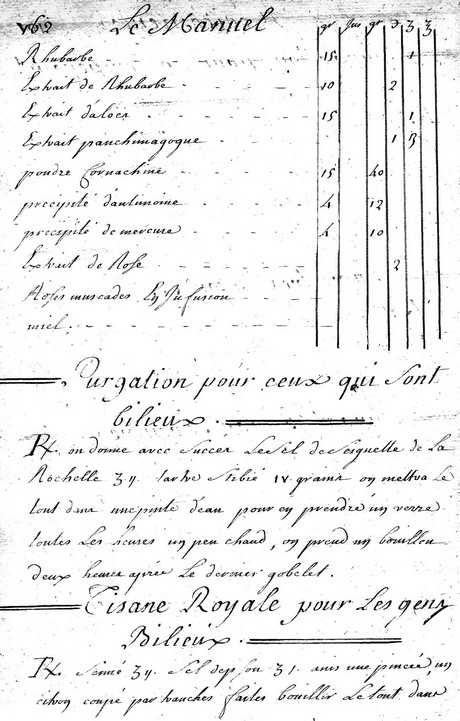 Le Manuel
gr jus gr ʒ ℥ ℥
Rhubarbe 15 1
Extrait de Rhubarbe 10 2
Extrait daloes 15 1
Extrait panchimagogue 1 B
poudre Cornachine 15 40
precipité dantimoine 4 12
precipité de mercure 4 10
Extrait de Rose 2
Roses muscades En Jnfusion
miel
Purgation pour ceux qui sont
bilieux
R. on donne avec succès Le Sel de Seignette de La
Rochelle ʒij. tartre Stibié IV grains on mettra Le
tout dans une pinte deau pour en prendre un verre
toutes Les heures un peu chaud, on prend un bouillon
deux heures après Le dernier gobelet.
Tisane Royale pour Les gens
Bilieux
R. Senné ʒij. Sel depson ʒi. anis une pincée, un
citron coupé par tranches faites bouillir Le tout dans